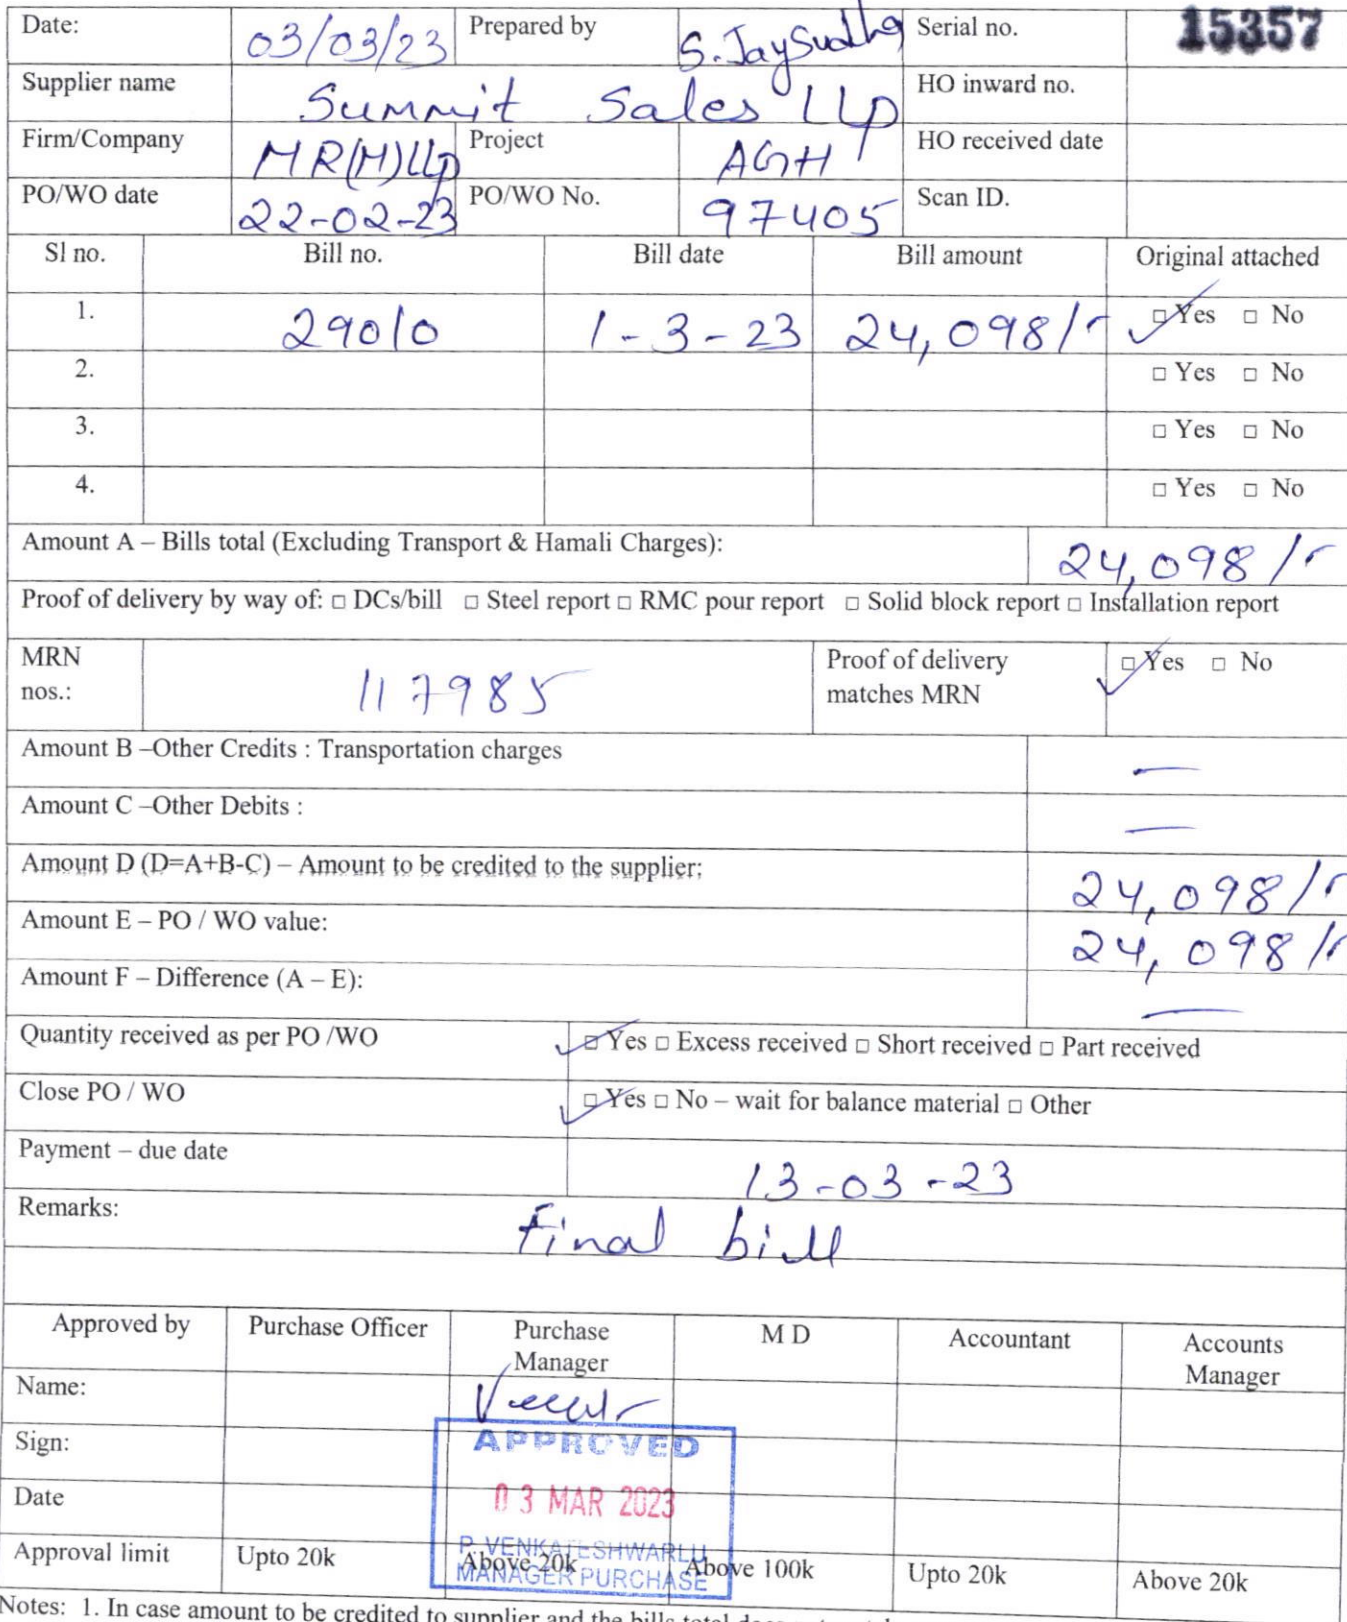 Date: 03/03/23 Prepared by S. JaySudha Serial no. 15357
Supplier name Summit Sales LLP HO inward no.
Firm/Company MR(M)LLP Project AGH HO received date
PO/WO date 22-02-23 PO/WO No. 97405 Scan ID.
Sl no. Bill no. Bill date Bill amount Original attached
1. 29010 1-3-23 24,098/- ☑ Yes □ No
2. □ Yes □ No
3. □ Yes □ No
4. □ Yes □ No
Amount A – Bills total (Excluding Transport & Hamali Charges): 24,098/-
Proof of delivery by way of: □ DCs/bill □ Steel report □ RMC pour report □ Solid block report □ Installation report
MRN nos.: 117985 Proof of delivery matches MRN ☑ Yes □ No
Amount B –Other Credits : Transportation charges —
Amount C –Other Debits : —
Amount D (D=A+B-C) – Amount to be credited to the supplier: 24,098/-
Amount E – PO / WO value: 24,098/-
Amount F – Difference (A – E): —
Quantity received as per PO /WO ☑ Yes □ Excess received □ Short received □ Part received
Close PO / WO ☑ Yes □ No – wait for balance material □ Other
Payment – due date 13-03-23
Remarks: Final bill
Approved by Purchase Officer Purchase Manager M D Accountant Accounts Manager
Name:
Sign: APPROVED
Date 03 MAR 2023
P. VENKATESHWARLU
Approval limit Upto 20k Above 20k Above 100k Upto 20k Above 20k
MANAGER PURCHASE
Notes: 1. In case amount to be credited to supplier and the bills total does not